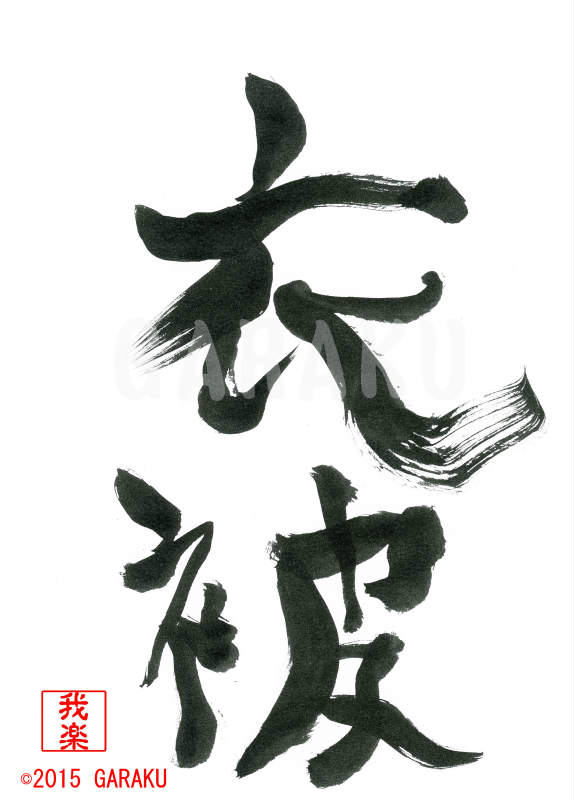 衣
被
GARAKU
我楽
©2015 GARAKU